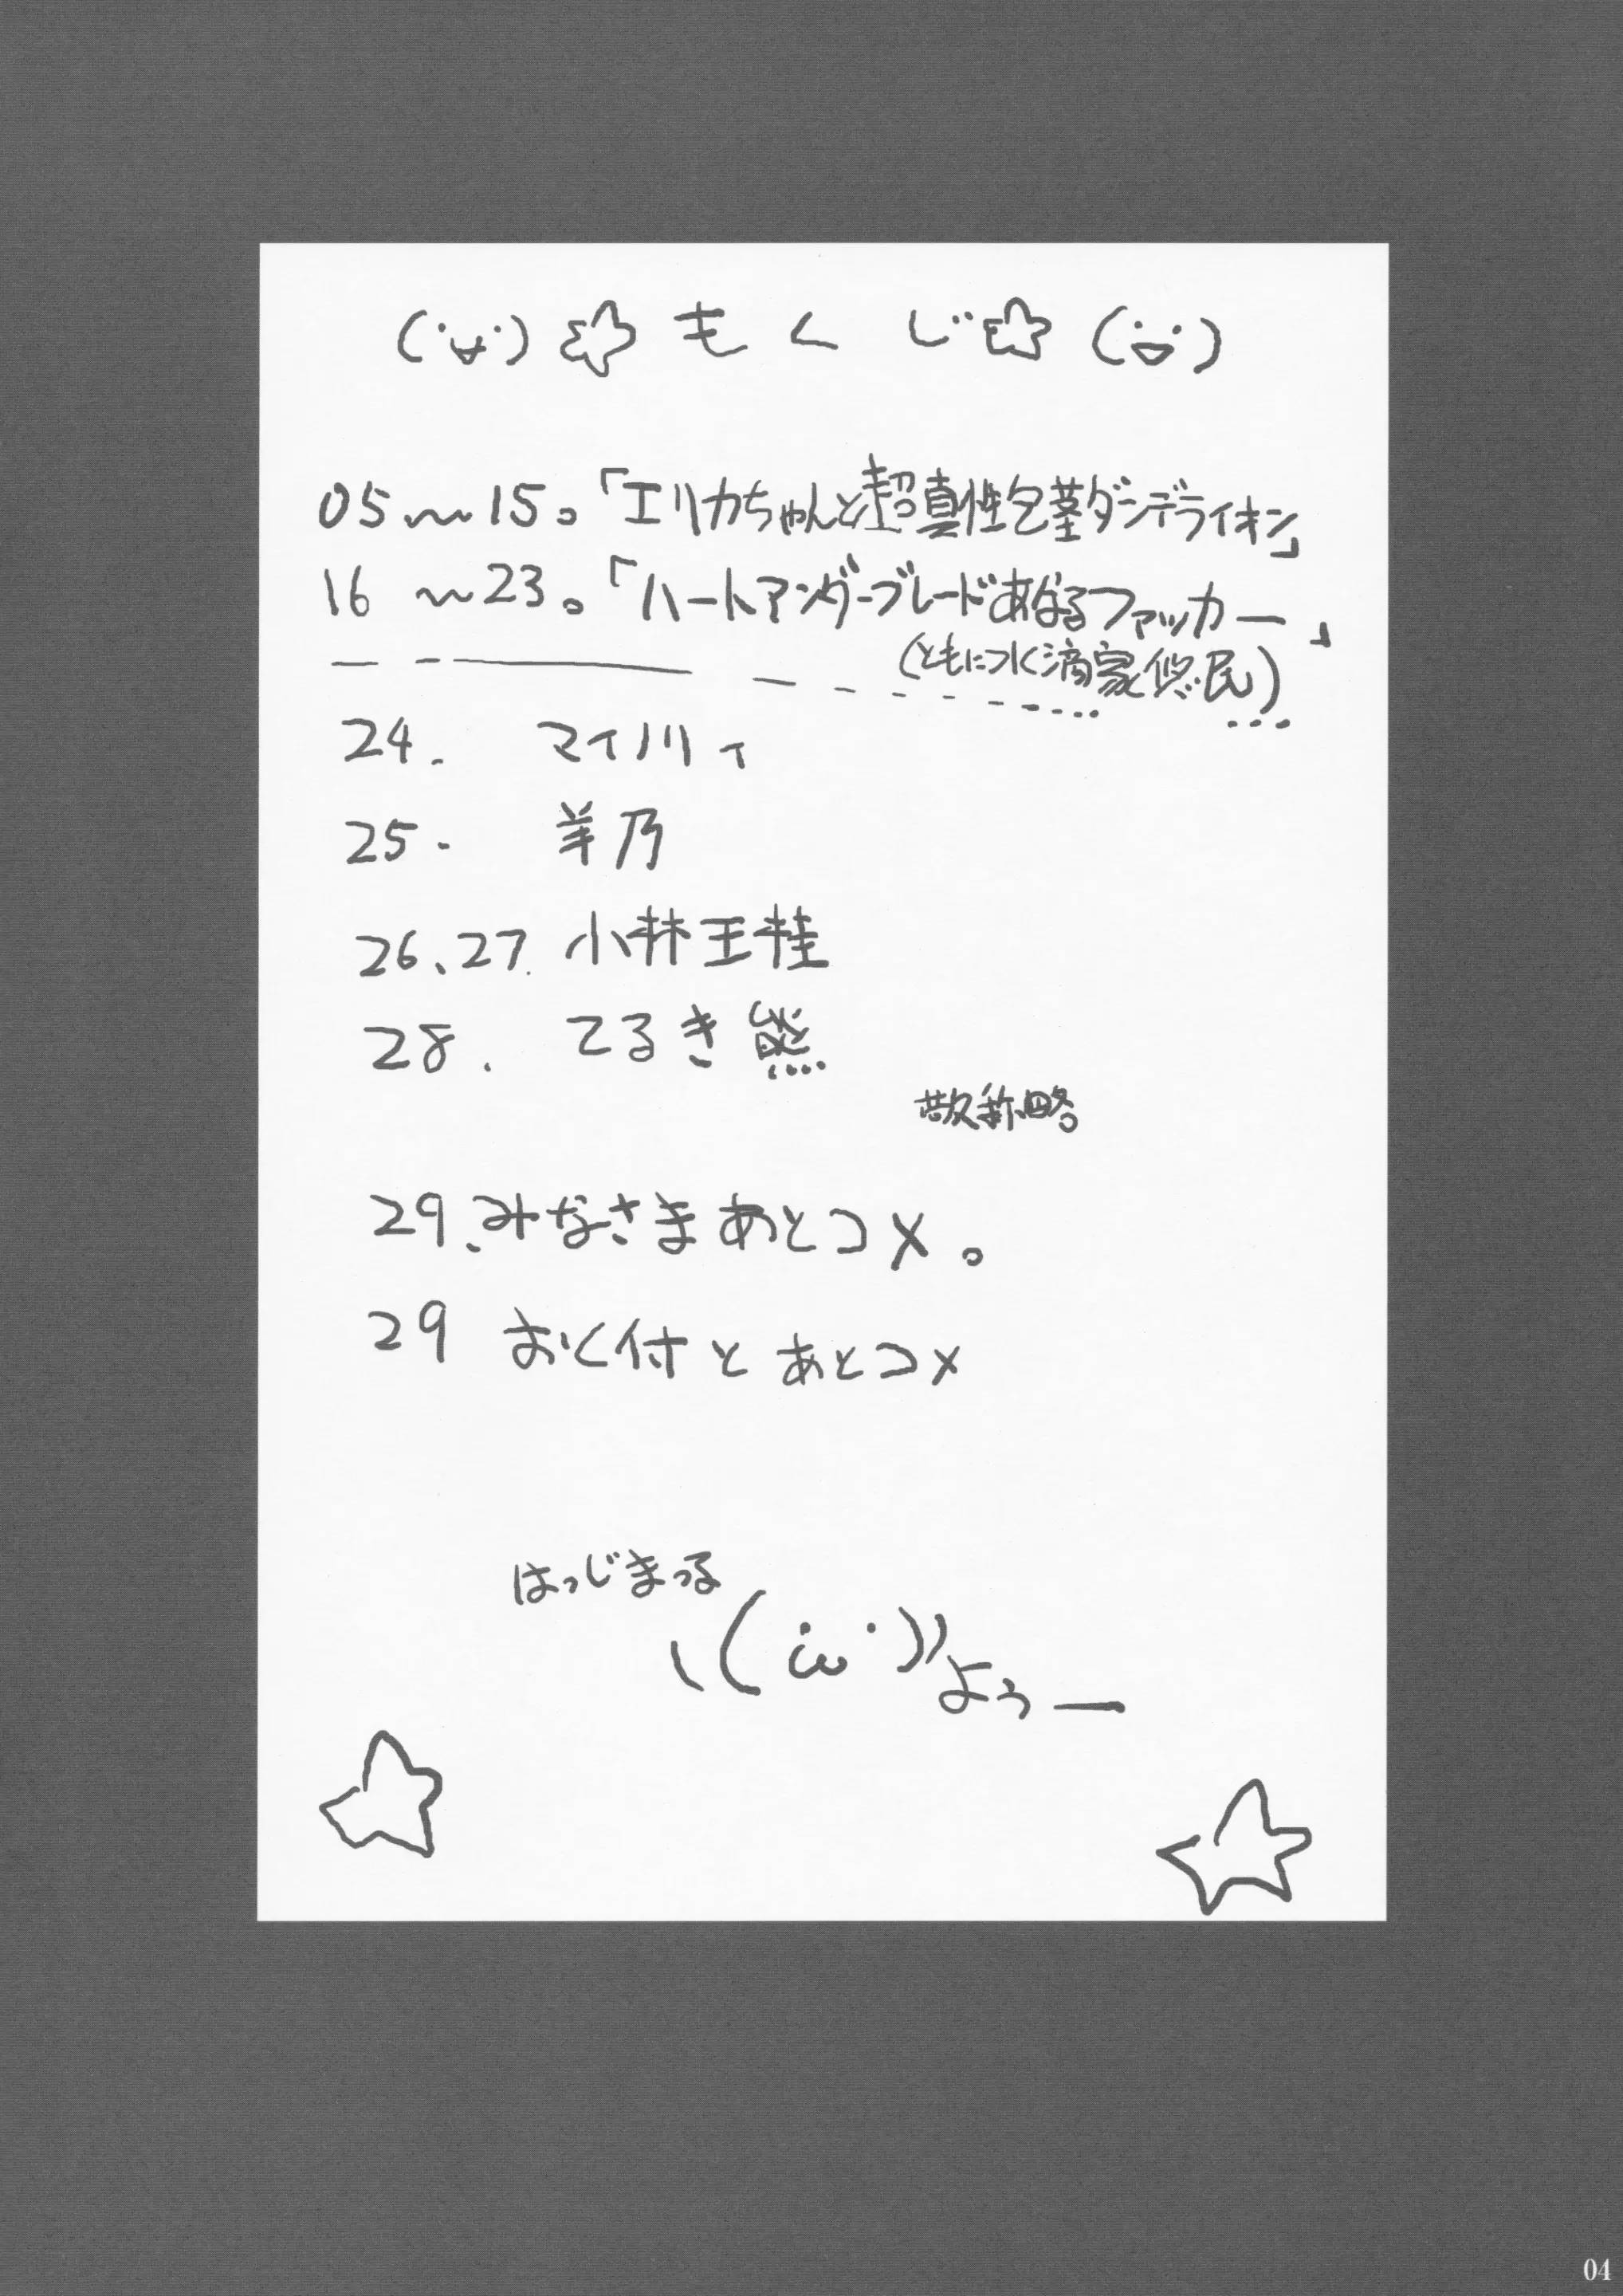 もくじ
05〜15。「エリカちゃんと超真性包茎ダンデライオン」
16〜23。「ハートアンダーブレードあなるファッカー」
(ともに水滴家悠民)
24. マイノリィ
25. 羊乃
26、27. 小林王桂
28. てるき熊
敬称略。
29、みなさまあとコメ。
29 おく付とあとコメ
はっじまっる
よぅー
04